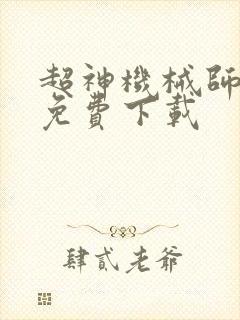 超神機械師
免費下載
肆貳老爺